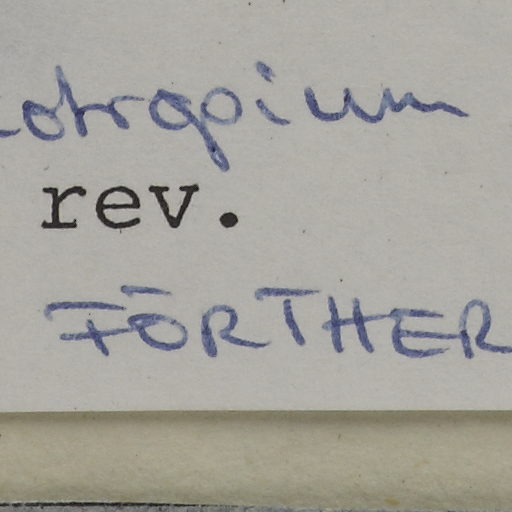 otropium
rev.
FÖRTHER